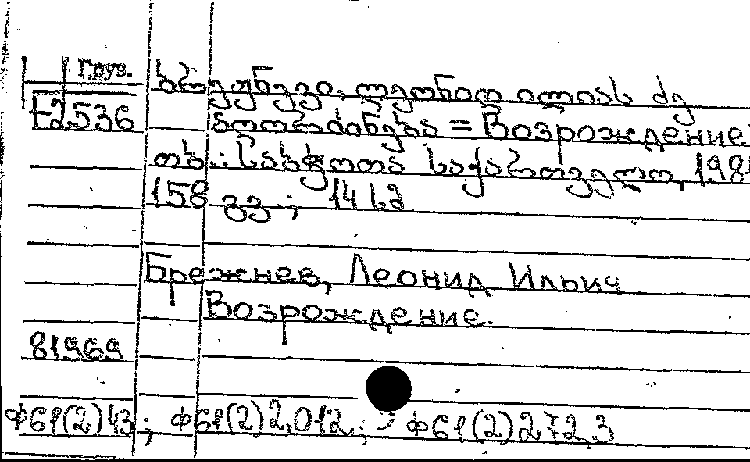 Груз.
ბრეჟნევი, ლეონიდ ილიას ძე
Г-2536
აღორძინება = Возрождение
თბ.: საბჭოთა საქართველო, 198
158 გვ.; 14 სმ
Брежнев, Леонид Ильич
Возрождение.
81969
Ф61(2)43; Ф61(2)2,012; Ф61(2)272,3